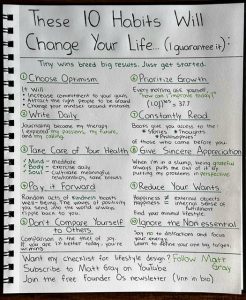 These 10 Habits Will
Change Your Life... (i guarantee it):
Tiny wins breed big results. Just get started.
① Choose Optimism
It will:
• Increase commitment to your goals
• Attract the right people to be around
• Change your mindset around mistakes
② Write Daily
Journaling become my therapy
I expand my passion, my future,
and my calling
③ Take Care of Your Health
✓ Mind = meditate
✓ Body = exercise daily
✓ Soul = cultivate meaningful
relationships, save bread
④ Pay it Forward
Random acts of kindness boosts
wellbeing. The waves of positivity
you send into the world always
ripple back to you.
⑤ Don't Compare Yourself
to Others
Comparison is the thief of joy.
If you are 1% better today, you're
winning.
⑥ Prioritize Growth
Every morning ask yourself,
"how can I improve today?"
(1.01)³⁶⁵ = 37.7
⑦ Constantly Read
Books give you access to the:
• Stories • Thoughts
• Philosophies
of those who came before you.
⑧ Give Sincere Appreciation
When I'm in a slump, being grateful
always pulls me out of it by
putting my problems in perspective.
⑨ Reduce Your Wants
Happiness ≠ external objects
Happiness = internal sense of
fulfillment
Find your minimal lifestyle.
⑩ Ignore the Non essential
Say no to distractions and focus
your energy.
Learn to define your one big target.
Want my checklist for lifestyle design? Follow Matt
Gray
Subscribe to Matt Gray on YouTube
Join the free Founder Os newsletter (link in bio)